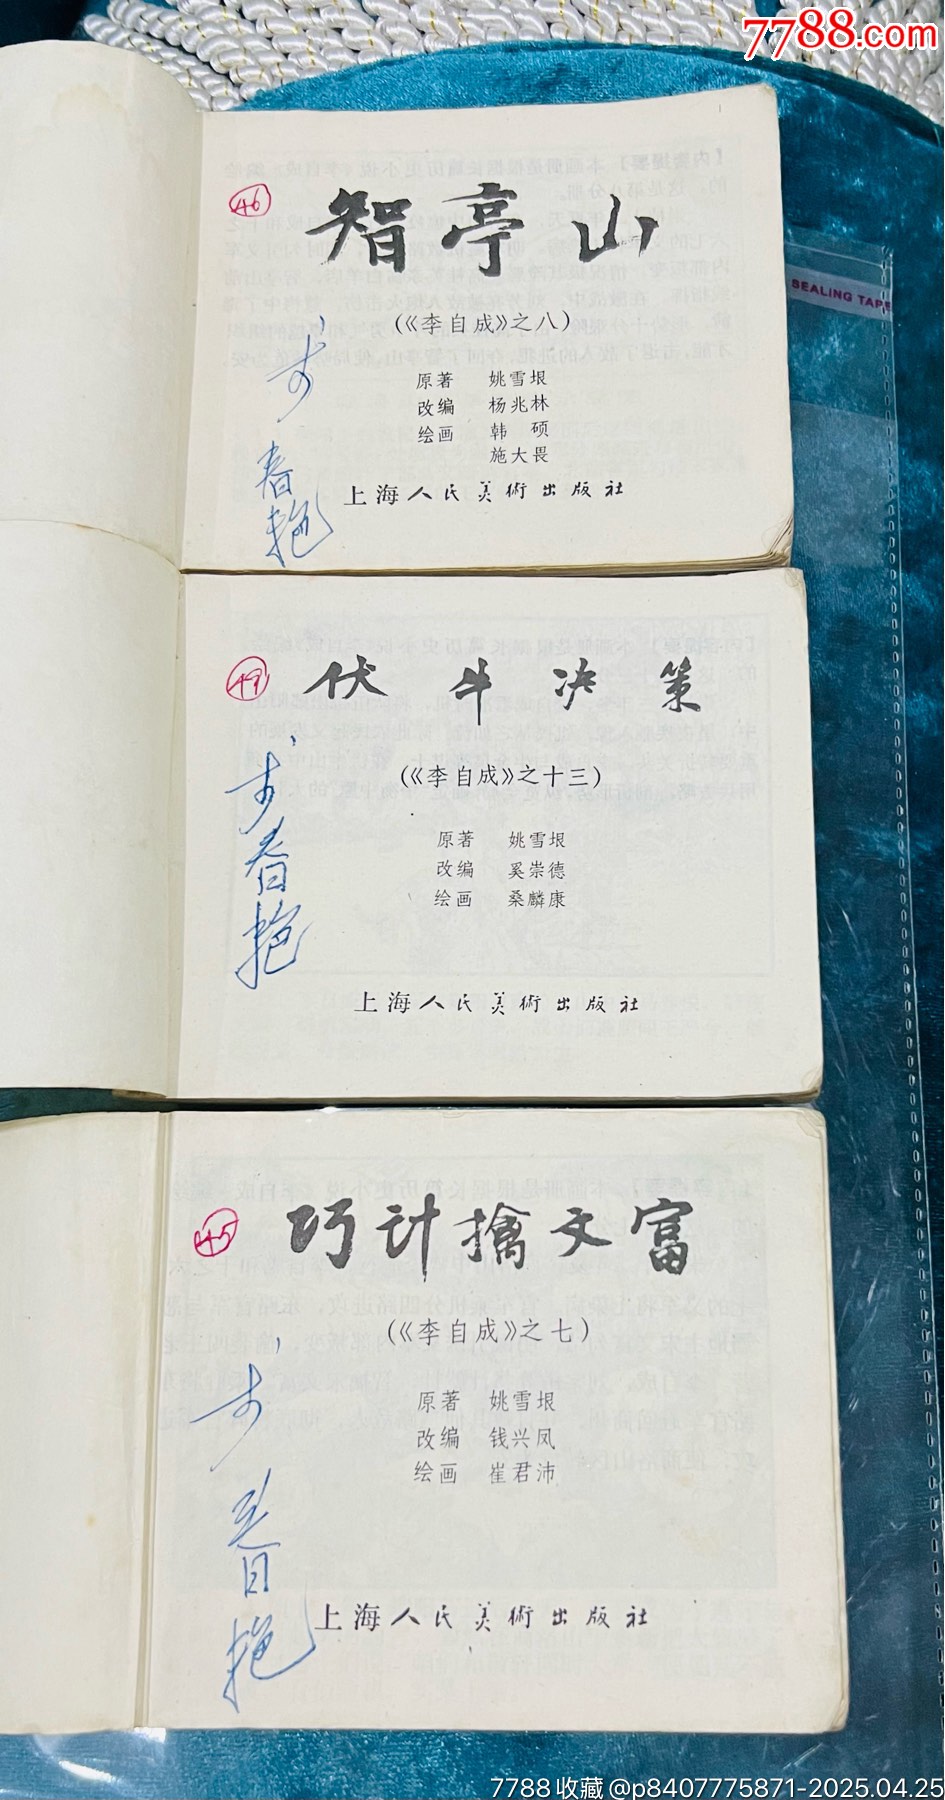 7788.com
SEALING TAPE
46
智亭山
(《李自成》之八)
原著 姚雪垠
改编 杨兆林
绘画 韩硕
施大畏
春艳
上海人民美術出版社
49
伏牛决策
(《李自成》之十三)
原著 姚雪垠
改编 奚崇德
绘画 桑麟康
春艳
上海人民美術出版社
45
巧计擒文富
(《李自成》之七)
原著 姚雪垠
改编 钱兴凤
绘画 崔君沛
春艳
上海人民美術出版社
7788收藏@p8407775871-2025.04.25